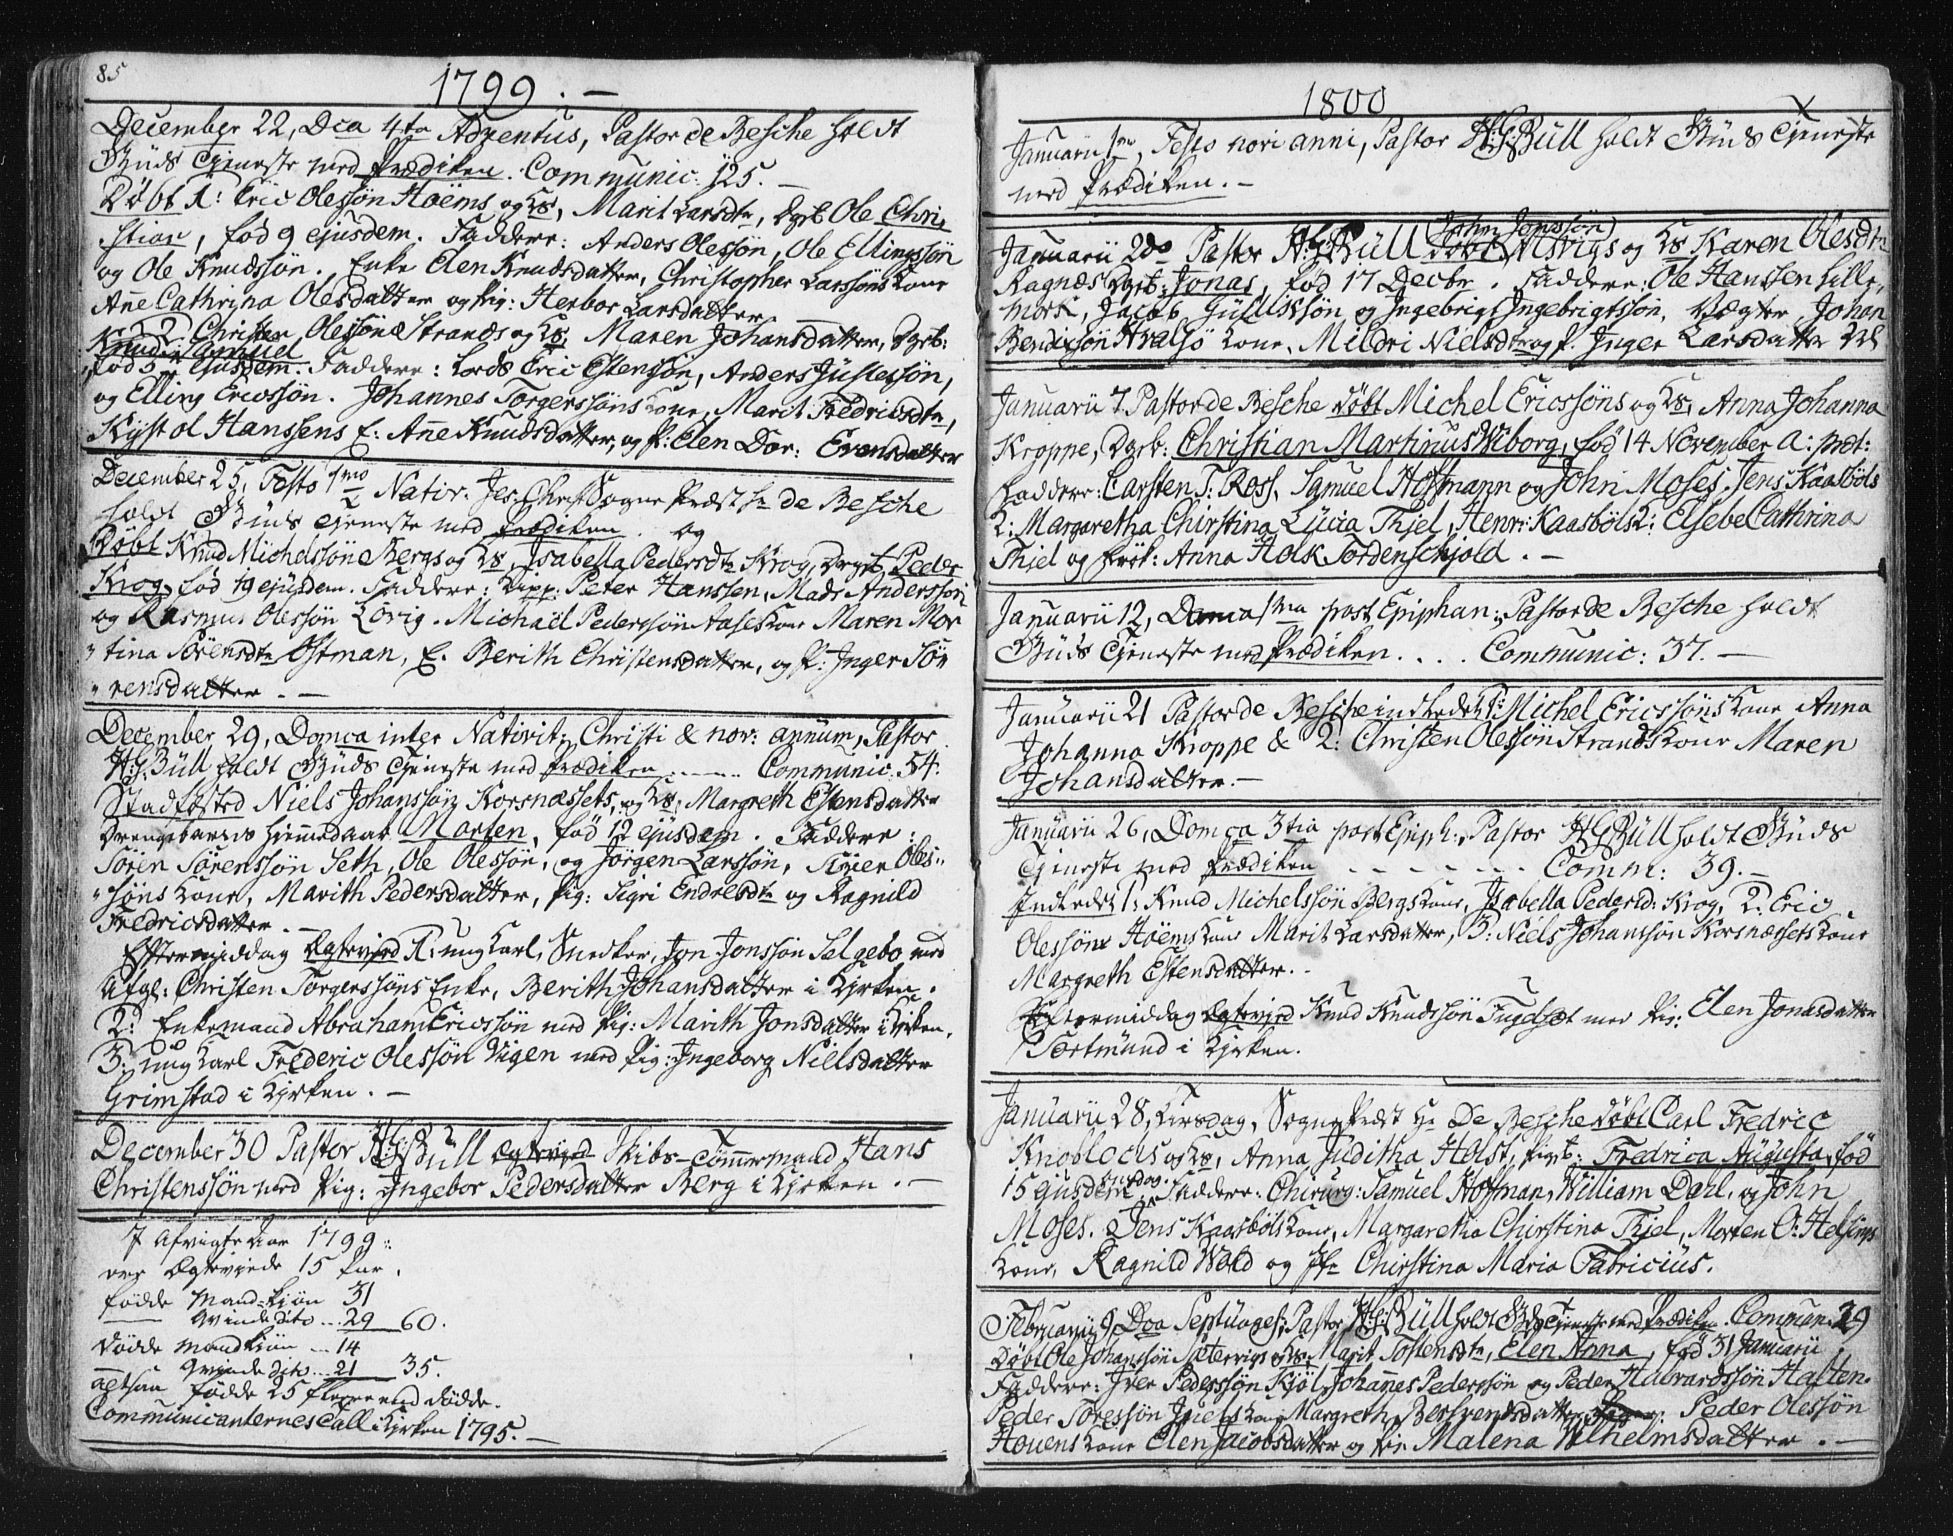 85
1799. —
December 22, Dca 4ta Adventus, Pastor de Besche holdt
Guds Tjeneste med Prædiken. Communic: 125. —
Døbt 1: Eric Olessøn Høems og Ks, Marit Larsdtr, Dgrb Ole Chri,
stian, fød 9 ejusdem. Faddere: Anders Olessøn, Ole Ellingssøn
og Ole Knudssøn. Enke Elen Knudsdatter, Christopher Larssøns Kone
Anne Cathrina Olesdatter og Pig: Herbor Larsdatter.
2. Christen Olessøn Strands og Ks, Maren Johansdatter, Dgrb:
Knud Samuel
fød 5 ejusdem. Faddere: Lords Eric Estensøn, Anders Justessøn,
og Elling Ericssøn. Johannes Torgerssøns Kone, Marit Fredricsdtr,
Kystol Hanssens E: Anne Knudsdatter, og P: Elen Dor: Evensdatter
December 25, Festo 1mo Nativ. Jes: Christ: Sogne Præst Hr de Besche
holdt Guds Tjeneste med Prædiken. og
Døbt Knud Michelssøn Bergs og Ks, Isabella Pedersdtr Krog, Drgb. Peder
Krog, fød 19 ejusdem. Faddere: Skipp: Peter Hanssen, Mads Anderssøn
og Rasmus Olessøn Lorig. Michaël Pederssøn Aases Kone Maren Mor
tina Sørensdtr Østman, E. Berith Christensdatter, og P: Inger Søv
rensdatter. —
December 29, Domca inter Nativit: Christi & nov: annum, Pastor
HG: Büll holdt Guds Tjeneste med Prædiken ...... Communic: 54.
Stadfæsted Niels Johanssøn Korsnæssets, og Ks, Margreth Estensdatter
Drengebarns hjemmedaab Morten, fød 12 ejusdem. Faddere:
Søren Sørenssøn Seth, Ole Olessøn, og Jørgen Larssøn, Søren Oles,
søns Kone, Marith Pedersdatter, Pig: Sigri Endresdtr og Ragnild
Fredricsdatter. —
Eftermiddag Ægtevied 1. ung Karl, Snedker, Jon Jonssøn Selgebo med
Afgl: Christen Torgerssøns Enke, Berith Johansdatter i Kirken.
2: Enkemand Abraham Ericssøn med Pig: Marith Jonsdatter i Kirken.
3: ung Karl Frederic Olessøn Vigen med Pig: Ingeborg Nielsdatter
Grimstad i Kirken. —
December 30 Pastor HG Büll Ægtevied Skibs-Tømmermand Hans
Christenssøn med Pig: Ingebor Pedersdatter Berg i Kirken. —
I Afvigte Aar 1799:
ere Ægteviede 15 Par.
fødde Mand-Kiøn 31
Qvinde dito ... 29 60.
Dödde Mandkiøn ... 14
Qvinde dito ... 21 35.
altsaa fødde 25 flere end dödde.
Communicanternes Tall i Kirken 1795. —
1800
Januarii 1mo, Festo novi anni, Pastor HG Büll holdt Guds Tjeneste
med Prædiken. —
John Jonssøn
Januarii 2do Pastor HG Büll Døbt Alsvigs og Ks Karen Olesdtr
Ragnæs Dgrb: Jonas, fød 17 Decbr. Faddere: Ole Hanssen Lille,
mork, Jacob Gulliksøn og Ingebrigt Ingebrigtssøn, Vægter Johan
Bendixøn Hvalsø Kone, Mildri Nielsdtr og P. Inger Larsdatter
Januarii 7. Pastor de Besche Døbt Michel Ericssøns og Ks, Anna Johanna
Kroppe, Dgrb: Christian Martinus Wiborg, fød 14 November A: præt:
Faddere: Carsten T: Ross, Samuel Hoffmann og John Moses. Jens Kaasbøls
K: Margaretha Chirstina Lucia Thiel, Henr: Kaasbøls K: Elsebe Cathrina
Thiel og Frøk: Anna Hak Tordenschjold. —
Januarii 12, Domca 1ma post Epiphan: Pastor de Besche holdt
Guds Tjeneste med Prædiken.... Communic: 37. —
Januarii 21 Pastor de Besche indledet 1: Michel Ericssøns Kone Anna
Johanna Kroppe & 2: Christen Olessøn Strands Kone Maren
Johansdatter. —
Januarii 26, Domca 3tia post Epiph:, Pastor HG Büll holdt Guds
Tjeneste med Prædiken - - - - - - - Comm: 39. —
Indledet 1: Knud Michelssøn Bergs Kone, Isabella Pedersd: Krog, 2: Eric
Olessøns Høems Kone Marit Larsdatter, 3: Niels Johanssøn Korsnæsets Kone
Margreth Estensdatter. -
Eftermiddag Ægteviet Knud Knudssøn Fugelsæt med Pig: Elen Jonasdatter
Tortmund i Kirken.
Januarii 28, Tirsdag, Sogne Præst Hr De Besche døbt Carl Fredric
Knoblocks og Ks, Anna Juditha Holst, Pigb: Fredrica Augusta, fød
15 ejusdem. Faddere: Chirurg: Samuel Hoffman, William Dahl, og John
Moses. Jens Kaasbøls Kone, Margaretha Chirstina Thiel, Morten O: Helsings
Kone, Ragnild Wold og Jfr Chirstina Maria Fabricius.
Februarii 9, Dca Septuages: Pastor HG: Büll holdt Guds Tjeneste med Prædiken Commun: 29
Døbt Ole Johanssøn Sætervigs og Ks, Marit Tostensdtr, Elen Anna, fød 31 Januarii
Faddere: Iver Pederssøn Kjøl, Johannes Pederssøn og Peder Halvardssøn Hasten.
Peder Toressøn Kone Margreth Bersvendsdatter Peder Olessøn
Hovens Kone Elen Jacobsdatter og Pi: Malena Wilhelmsdatter. —